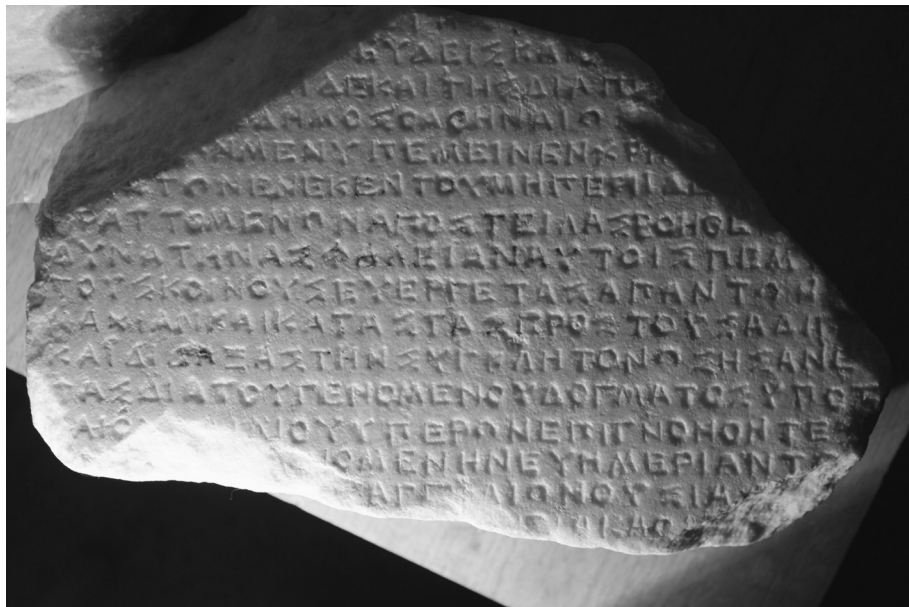 ΟΥΔΕΙΣΚΑ
ΔΕΚΑΙΤΗΣΔΙΑΠ
ΔΗΜΟΣΟΑΘΗΝΑΙΩ
ΜΕΝΥΠΕΜΕΙΝΕΝΧΡ
ΤΩΝΕΝΕΚΕΝΤΟΥΜΗΠΕΡΙΙΔΕ
ΡΑΤΤΟΜΕΝΩΝΑΠΟΣΤΕΙΛΑΣΒΟΗΘΕ
ΔΥΝΑΤΗΝΑΣΦΑΛΕΙΑΝΑΥΤΟΙΣΠ
ΤΟΥΣΚΟΙΝΟΥΣΕΥΕΡΓΕΤΑΣΑΠΑΝΤΩΝ
ΜΑΧΙΑΝΚΑΙΚΑΤΑΣΤΑΣΠΡΟΣΤΟΥΣΑΔΙΚ
ΚΑΙΔΙΔΑΞΑΣΤΗΝΣΥΓΚΛΗΤΟΝΩΣΗΣΑΝΕ
ΤΑΣΔΙΑΤΟΥΓΕΝΟΜΕΝΟΥΔΟΓΜΑΤΟΣΥΠΟ
ΟΥΥΠΕΡΩΝΕΠΙΓΝΟΝΟΝΤΕ
ΟΜΕΝΗΝΕΥΗΜΕΡΙΑΝΤ
ΑΓΓΕΛΙΩΝΟΥΣΙΑ
ΚΑΘ